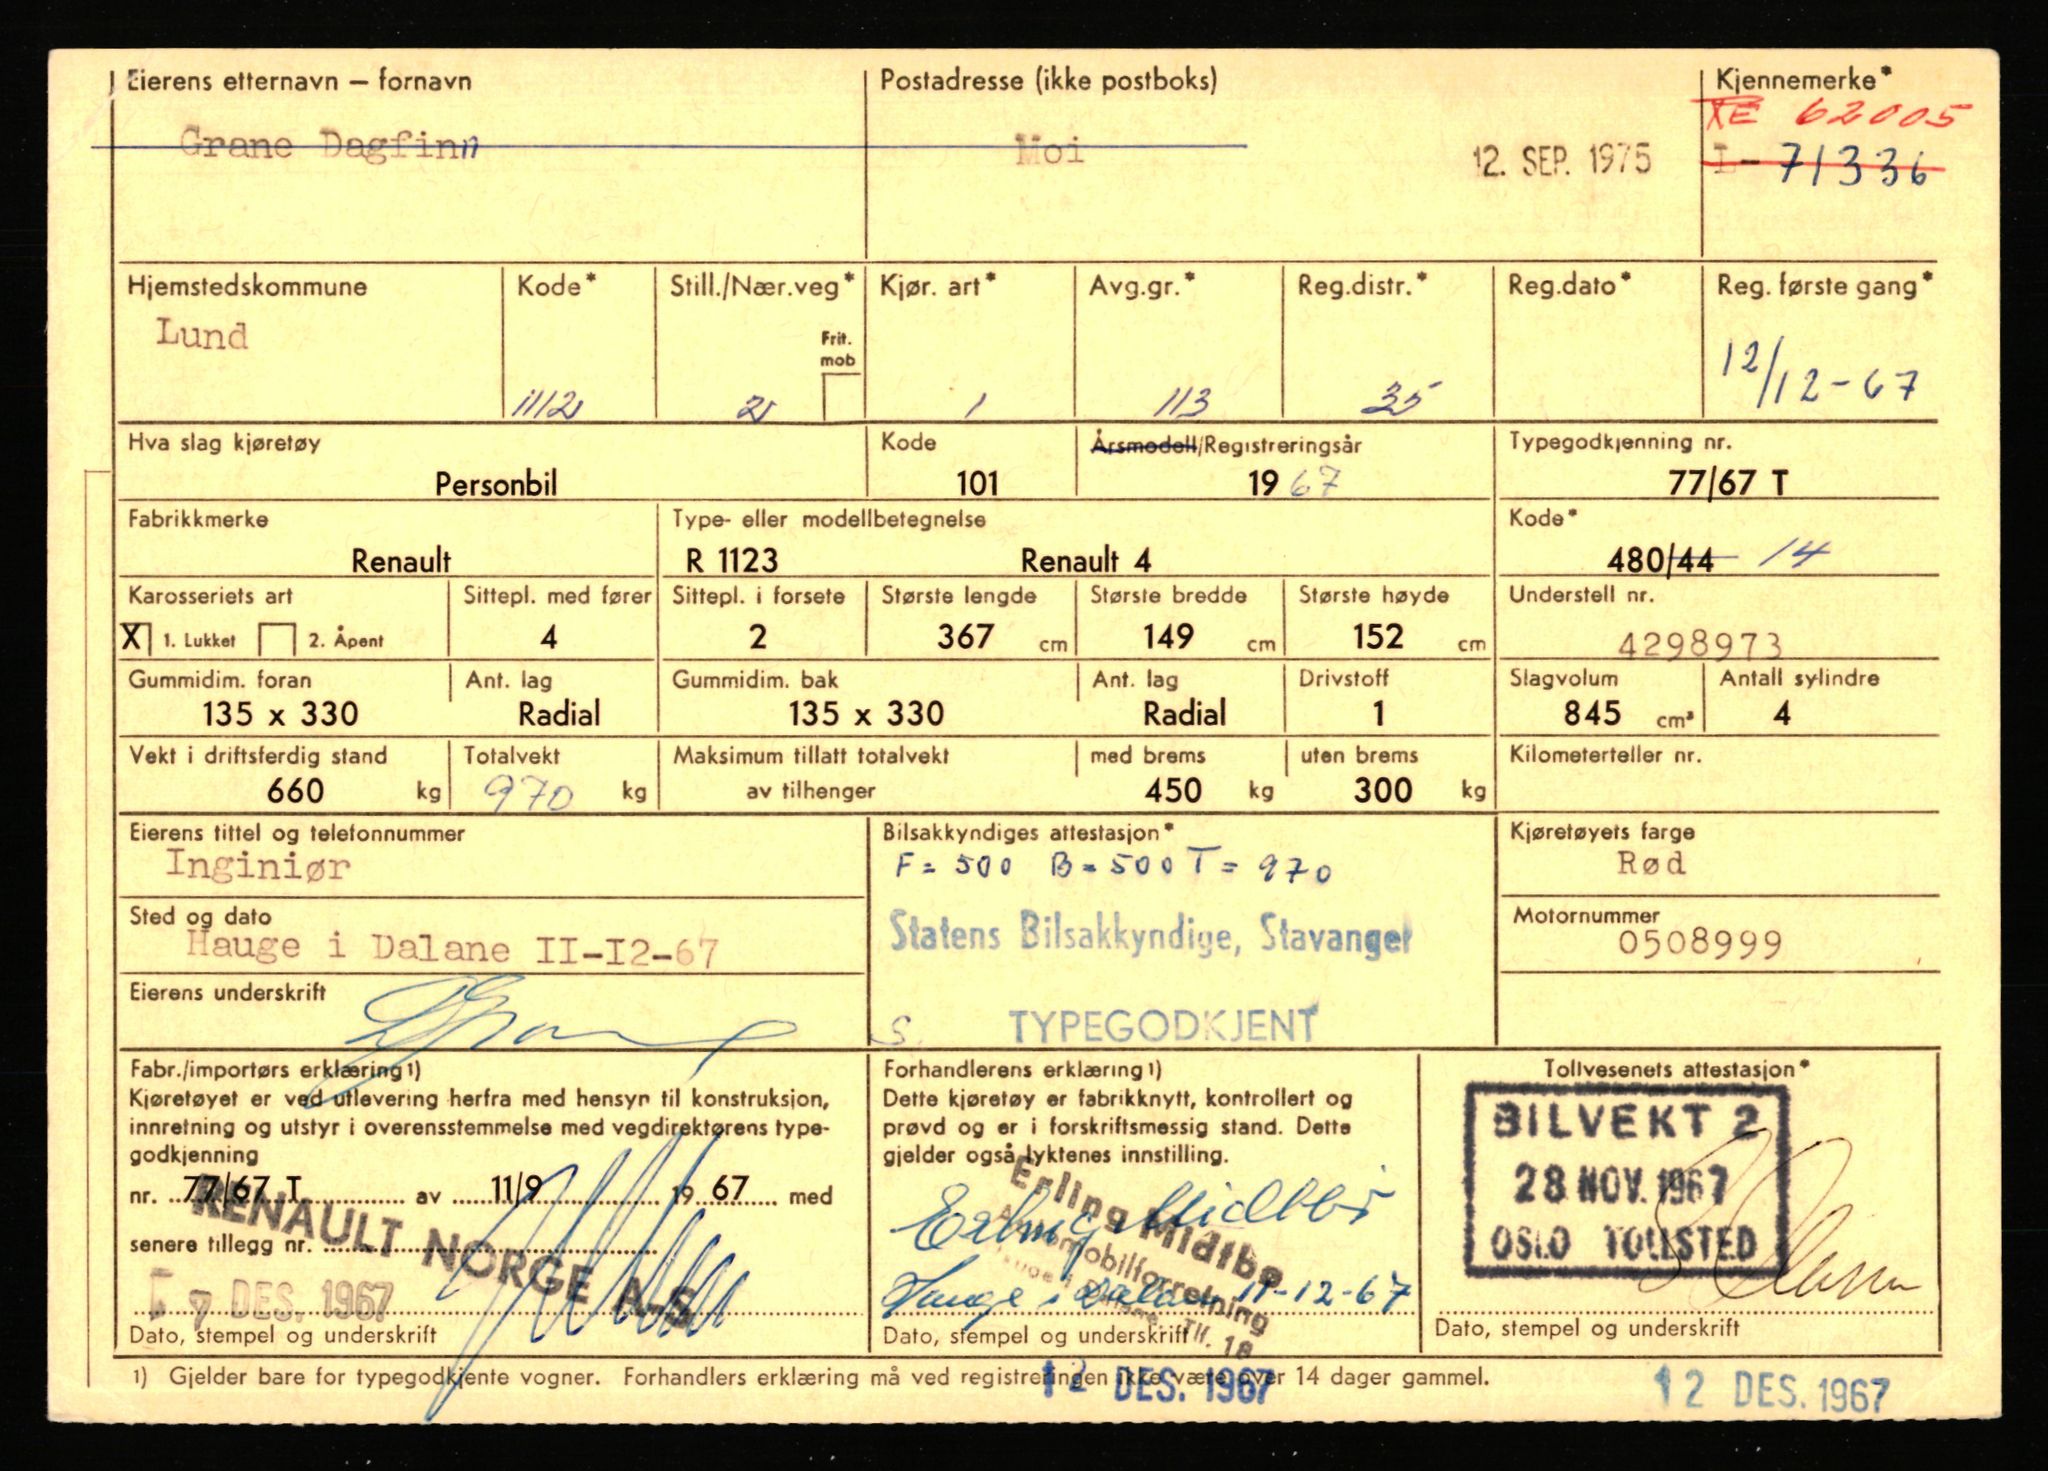 Eierens etternavn — fornavn
Grane Dagfinn
Postadresse (ikke postboks)
Moi
12. SEP. 1975
Kjennemerke*
62005
L - 71336
Hjemstedskommune
Lund
Kode*
1112
Still./Nær.veg*
2
Frit. mob
Kjør. art*
1
Avg.gr.*
113
Reg.distr.*
35
Reg.dato*
Reg. første gang*
12/12-67
Hva slag kjøretøy
Personbil
Kode
101
Årsmodell/Registreringsår
1967
Typegodkjenning nr.
77/67 T
Fabrikkmerke
Renault
Type- eller modellbetegnelse
R 1123 Renault 4
Kode*
480/44 14
Karosseriets art
X 1. Lukket 2. Åpent
Sittepl. med fører
4
Sittepl. i forsete
2
Største lengde
367 cm
Største bredde
149 cm
Største høyde
152 cm
Understell nr.
4298973
Gummidim. foran
135 x 330
Ant. lag
Radial
Gummidim. bak
135 x 330
Ant. lag
Radial
Drivstoff
1
Slagvolum
845 cm³
Antall sylindre
4
Vekt i driftsferdig stand
660 kg
Totalvekt
970 kg
Maksimum tillatt totalvekt
av tilhenger
med brems
450 kg
uten brems
300 kg
Kilometerteller nr.
Eierens tittel og telefonnummer
Inginiør
Bilsakkyndiges attestasjon*
F = 500 B = 500 T = 970
Statens Bilsakkyndige, Stavanger
S. TYPEGODKJENT
Kjøretøyets farge
Rød
Sted og dato
Hauge i Dalane II-I2-67
Motornummer
0508999
Eierens underskrift
Fabr./importørs erklæring 1)
Kjøretøyet er ved utlevering herfra med hensyn til konstruksjon,
innretning og utstyr i overensstemmelse med vegdirektørens type-
godkjenning
nr. 77/67 T av 11/9 1967 med
senere tillegg nr.
RENAULT NORGE A-S
7 DES. 1967
Dato, stempel og underskrift
Forhandlerens erklæring 1)
Dette kjøretøy er fabrikknytt, kontrollert og
prøvd og er i forskriftsmessig stand. Dette
gjelder også lyktenes innstilling.
Erling Midtbø
Automobilforretning
Hauge i Dalane Tlf. 18
Erling Midtbø
Hauge i Dalane 11-12-67
Dato, stempel og underskrift
Tollvesenets attestasjon*
BILVEKT 2
28 NOV. 1967
OSLO TOLLSTED
Dato, stempel og underskrift
1) Gjelder bare for typegodkjente vogner. Forhandlers erklæring må ved registreringen ikke være over 14 dager gammel.
12 DES. 1967
12 DES. 1967